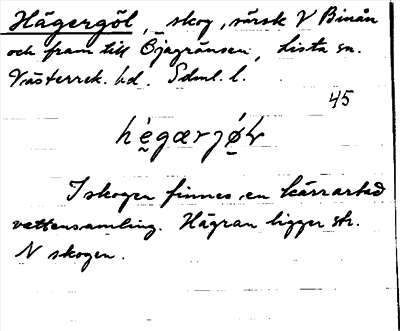 Hägergöl, skog, särsk V Binån
och fram till Öjagränsen, Lista sn.
Västerrek. hd. Sdml. l.
45
hègærjö̀ɫ
I skogen finnes en kärrartad
vattensamling. Hägran ligger str.
N skogen.